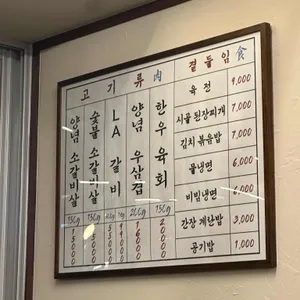 고기류 肉
곁들임 食
한우 육회
양념 우삼겹
LA 갈비
숯불 소갈비살
양념 소갈비살
200g
150g
150g
육전 9,000
시골 된장찌개 7,000
김치 볶음밥 7,000
물냉면 6,000
비빔냉면 6,000
간장 계란밥 3,000
공기밥 1,000